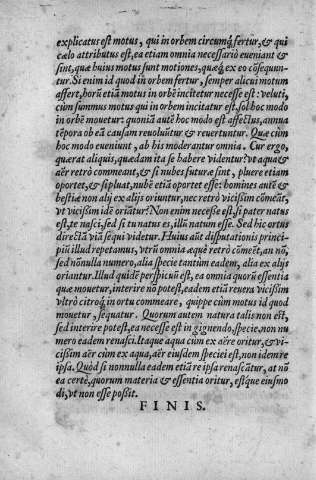 explicatus est motus, qui in orbem circumq́; fertur, & qui
cælo attributus est, ea etiam omnia necessariò eueniant &
sint, quæ huius motus sunt motiones, quæq́; ex eo cõsequun-
tur. Si enim id quod in orbem fertur, semper alicui motum
affert, horũ etiã motus in orbẽ incitetur necesse est: veluti,
cùm summus motus qui in orbem incitatur est, sol hoc modo
in orbẽ mouetur: quoniã autẽ hoc modo est affectus, annua
tẽpora ob eã causam reuoluũtur & reuertuntur. Quæ cùm
hoc modo eueniunt, ab his moderantur omnia. Cur ergo,
quærat aliquis, quædam ita se habere videntur: vt aqua &
aër retrò commeant, & si nubes futuræ sint, pluere etiam
oportet, & si pluat, nubẽ etiã oportet esse: homines autẽ &
bestiæ non alij ex alijs oriuntur, nec retrò vicißim cõmeãt,
vt vicißim idẽ oriãtur? Non enim necesse est, si pater natus
est, te nasci, sed si tu natus es, illũ natum esse. Sed hic ortus
directã viã sequi videtur. Huius aũt disputationis princi-
piũ illud repetamus, vtrũ omnia æquè retrò cõmeẽt, an nõ,
sed nõnulla numero, alia specie tantùm eadem, alia ex alijs
oriantur. Illud quidẽ perspicuũ est, ea omnia quorũ essentia
quæ mouetur, interire nõ potest, eadem etiã reuera vicißim
vltrò citroq́; in ortu commeare, quippe cùm motus id quod
mouetur, sequatur. Quorum autem natura talis non est,
sed interire potest, ea necesse est in gignendo, specie, non nu
mero eadem renasci. Itaque aqua cùm ex aëre oritur, & vi-
cißim aër cùm ex aqua, aër eiusdem speciei est, non idem re
ipsa. Quòd si nonnulla eadem etiã re ipsa renascãtur, at nõ
ea certè, quorum materia & essentia oritur, estq́ue eiusmo
di, vt non esse poßit.
FINIS.